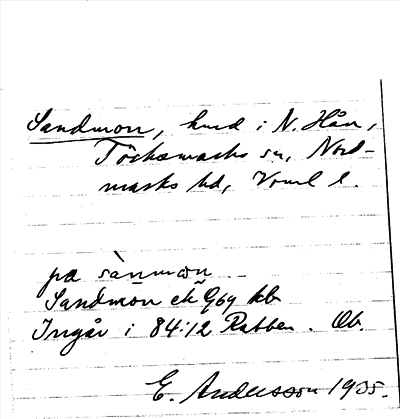 Sandmon, hmd i N. Hån,
Töcksmarks sn, Nord-
marks hd, Vrml l.
på sànmωn
Sandmon ek G69 kb
Ingår i 84:12 Rabben. Ob.
E. Andersson 1935.